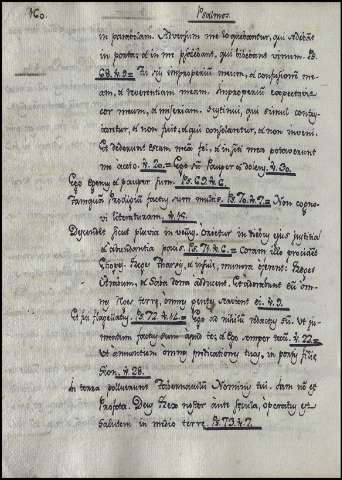 160. Psalmos.
in parabolam. Adversum me loquebantur, qui sedebãt
in porta; & in me psallebant, qui bibebant vinum. Ps.
68. ℣. 9. = Tu scis improperiũ meum, & confusionẽ me-
am, & reverentiam meam. Improperiũ expectavit
cor meum, & miseriam. Sustinui, qui simul contris-
taretur, & non fuit; & qui consolaretur, & non inveni.
Et dederunt escam meã fel, & in siti mea potaverunt
me aceto. ℣. 20. = Ego sũ pauper & dolens. ℣. 30.
Ego egens, & pauper sum. Ps. 69. ℣. 6.
Tamquã prodigiũ factus sum multis. Ps. 70. ℣. 7. = Non cogno-
vi literaturam. ℣. 15.
Descendet sicut pluvia in vellus. Orietur in diebus ejus justitia
& abundantia pacis. Ps. 71. ℣. 6. = Coram illo procidẽt
Reges Tharsis, & insulæ, munera offerent: Reges
Arabum, & Saba dona adducent. Et adorabunt eũ om-
nes Reges terræ: omnes gentes servient ei. ℣. 9.
Et fui flagellatus. Ps. 72. ℣. 14. = Ego ad nihilũ redactus sũ. Ut ju-
mentum factus sum apud te; & Ego semper tecũ. ℣. 22. =
Ut annuntiem omnes prædicationes tuas, in portis filiæ
Sion. ℣. 28.
In terra polluerunt Tabernaculũ Nominis tui. Jam nõ est
Profeta. Deus Rex noster ante sæcula, operatus est
salutem in medio terræ. Ps. 73. ℣. 7.